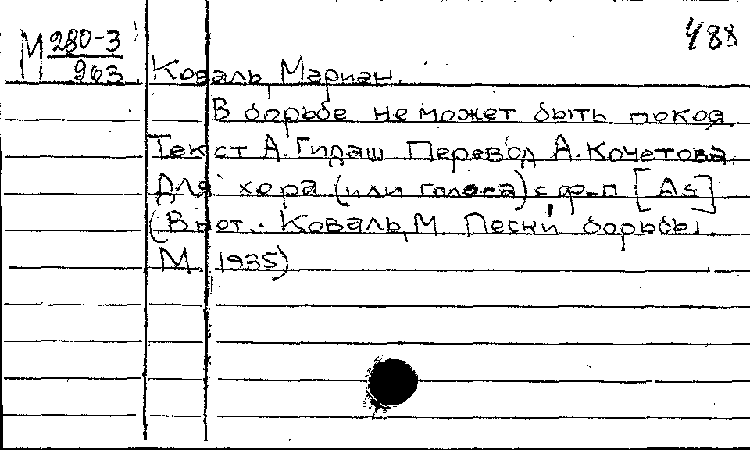 М 280-3
963
488
Коваль, Мариан.
В борьбе не может быть покоя.
Текст А. Гидаш Перевод А. Кочетова
Для хора (или голоса) с ф-п [As]
(В нот.: Коваль, М. Песни борьбы
М. 1935)